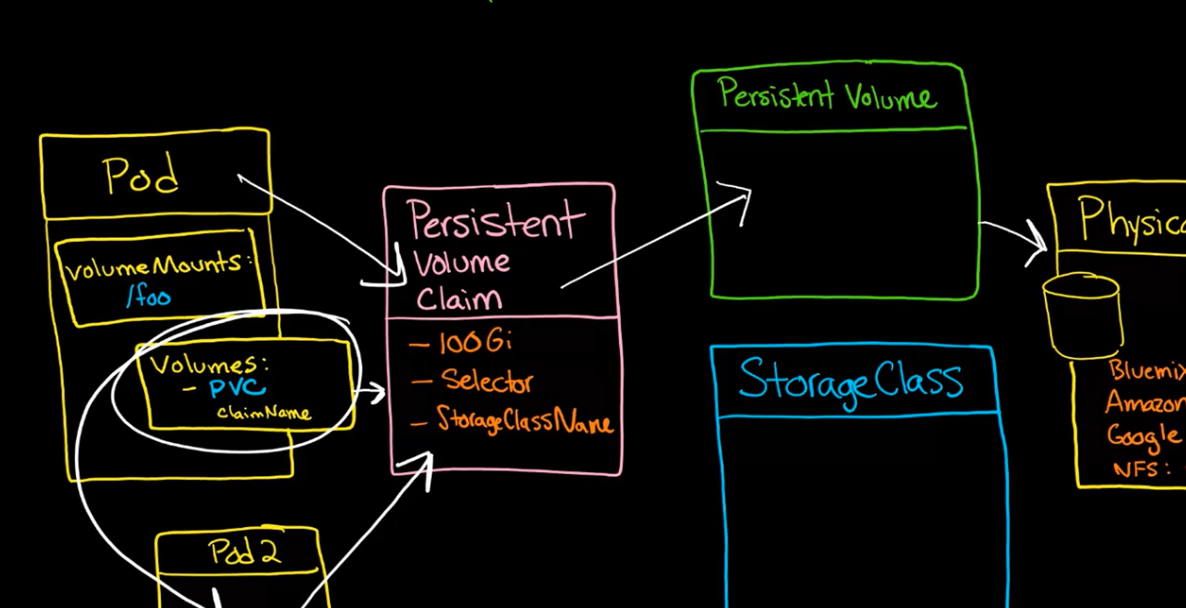 Pod
volumeMounts:
/foo
Volumes:
- PVC
claimName
Pod 2
Persistent
Volume
Claim
- 100Gi
- Selector
- StorageClassName
Persistent Volume
StorageClass
Physica
Bluemix
Amazon
Google
NFS: